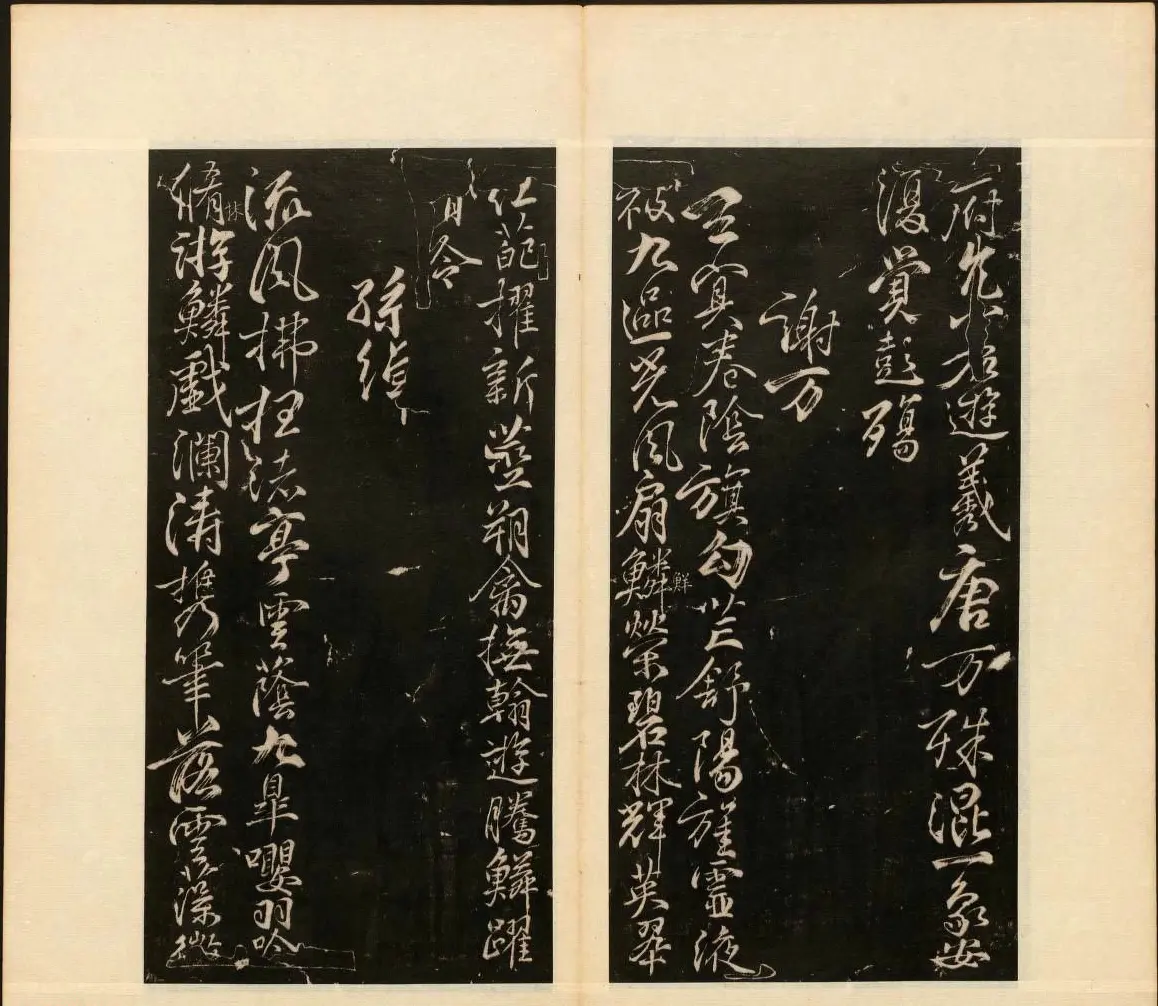 府兀若遊羲唐万殊混一象安
復覺彭殤
謝万
玄冥卷陰旗勾芒舒陽旌靈液
被九區光風扇鱗榮碧林輝英翠
鮮
紅葩擢新莖翔禽撫翰遊騰鱗躍
清泠
孫綽
流風拂枉渚亭雲蔭九皋嚶羽吟
脩游鱗戲瀾濤携筆落雲藻微
林